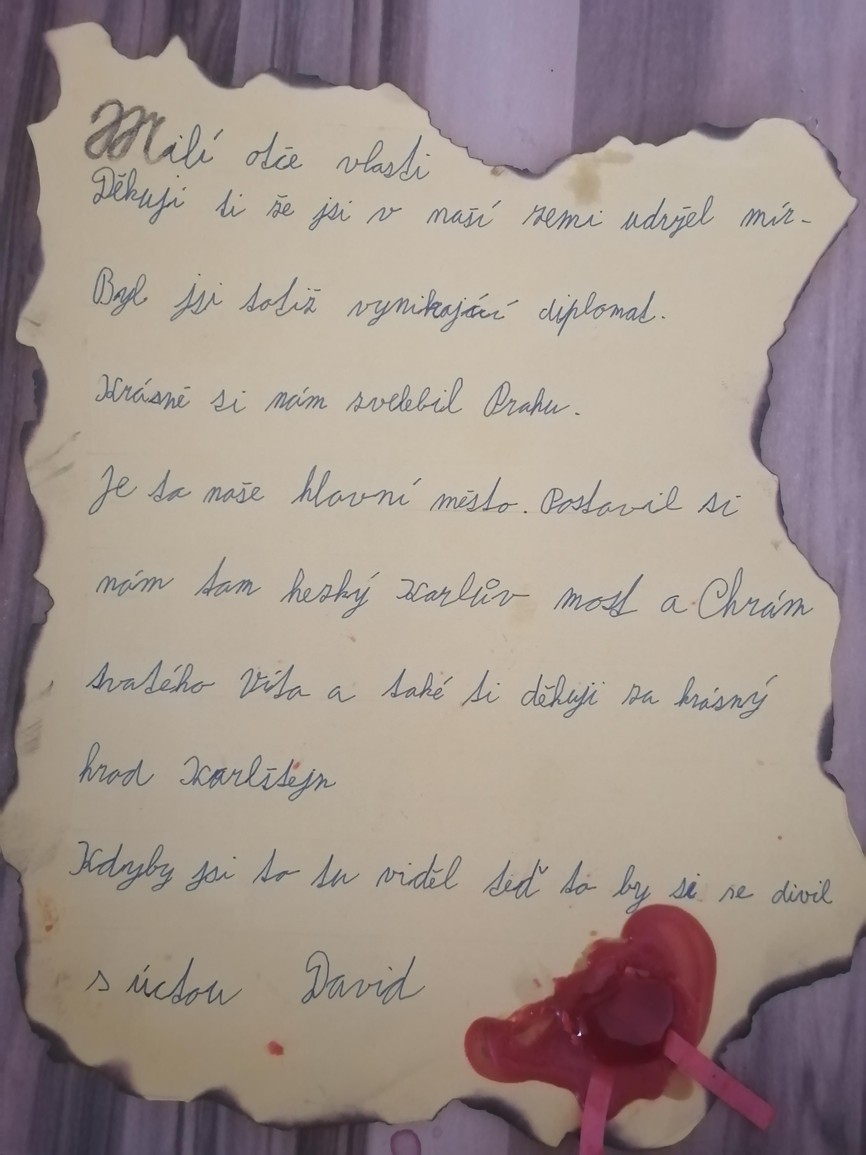 Milí otče vlasti
Děkuji ti že jsi v naší zemi udržel mír.
Byl jsi totiž vynikající diplomat.
Krásně si nám zvelebil Prahu.
Je to naše hlavní město. Postavil si
nám tam hezký Karlův most a Chrám
svatého Víta a také ti děkuji za krásný
hrad Karlštejn
Kdyby jsi to tu viděl teď to by si se divil
s úctou David